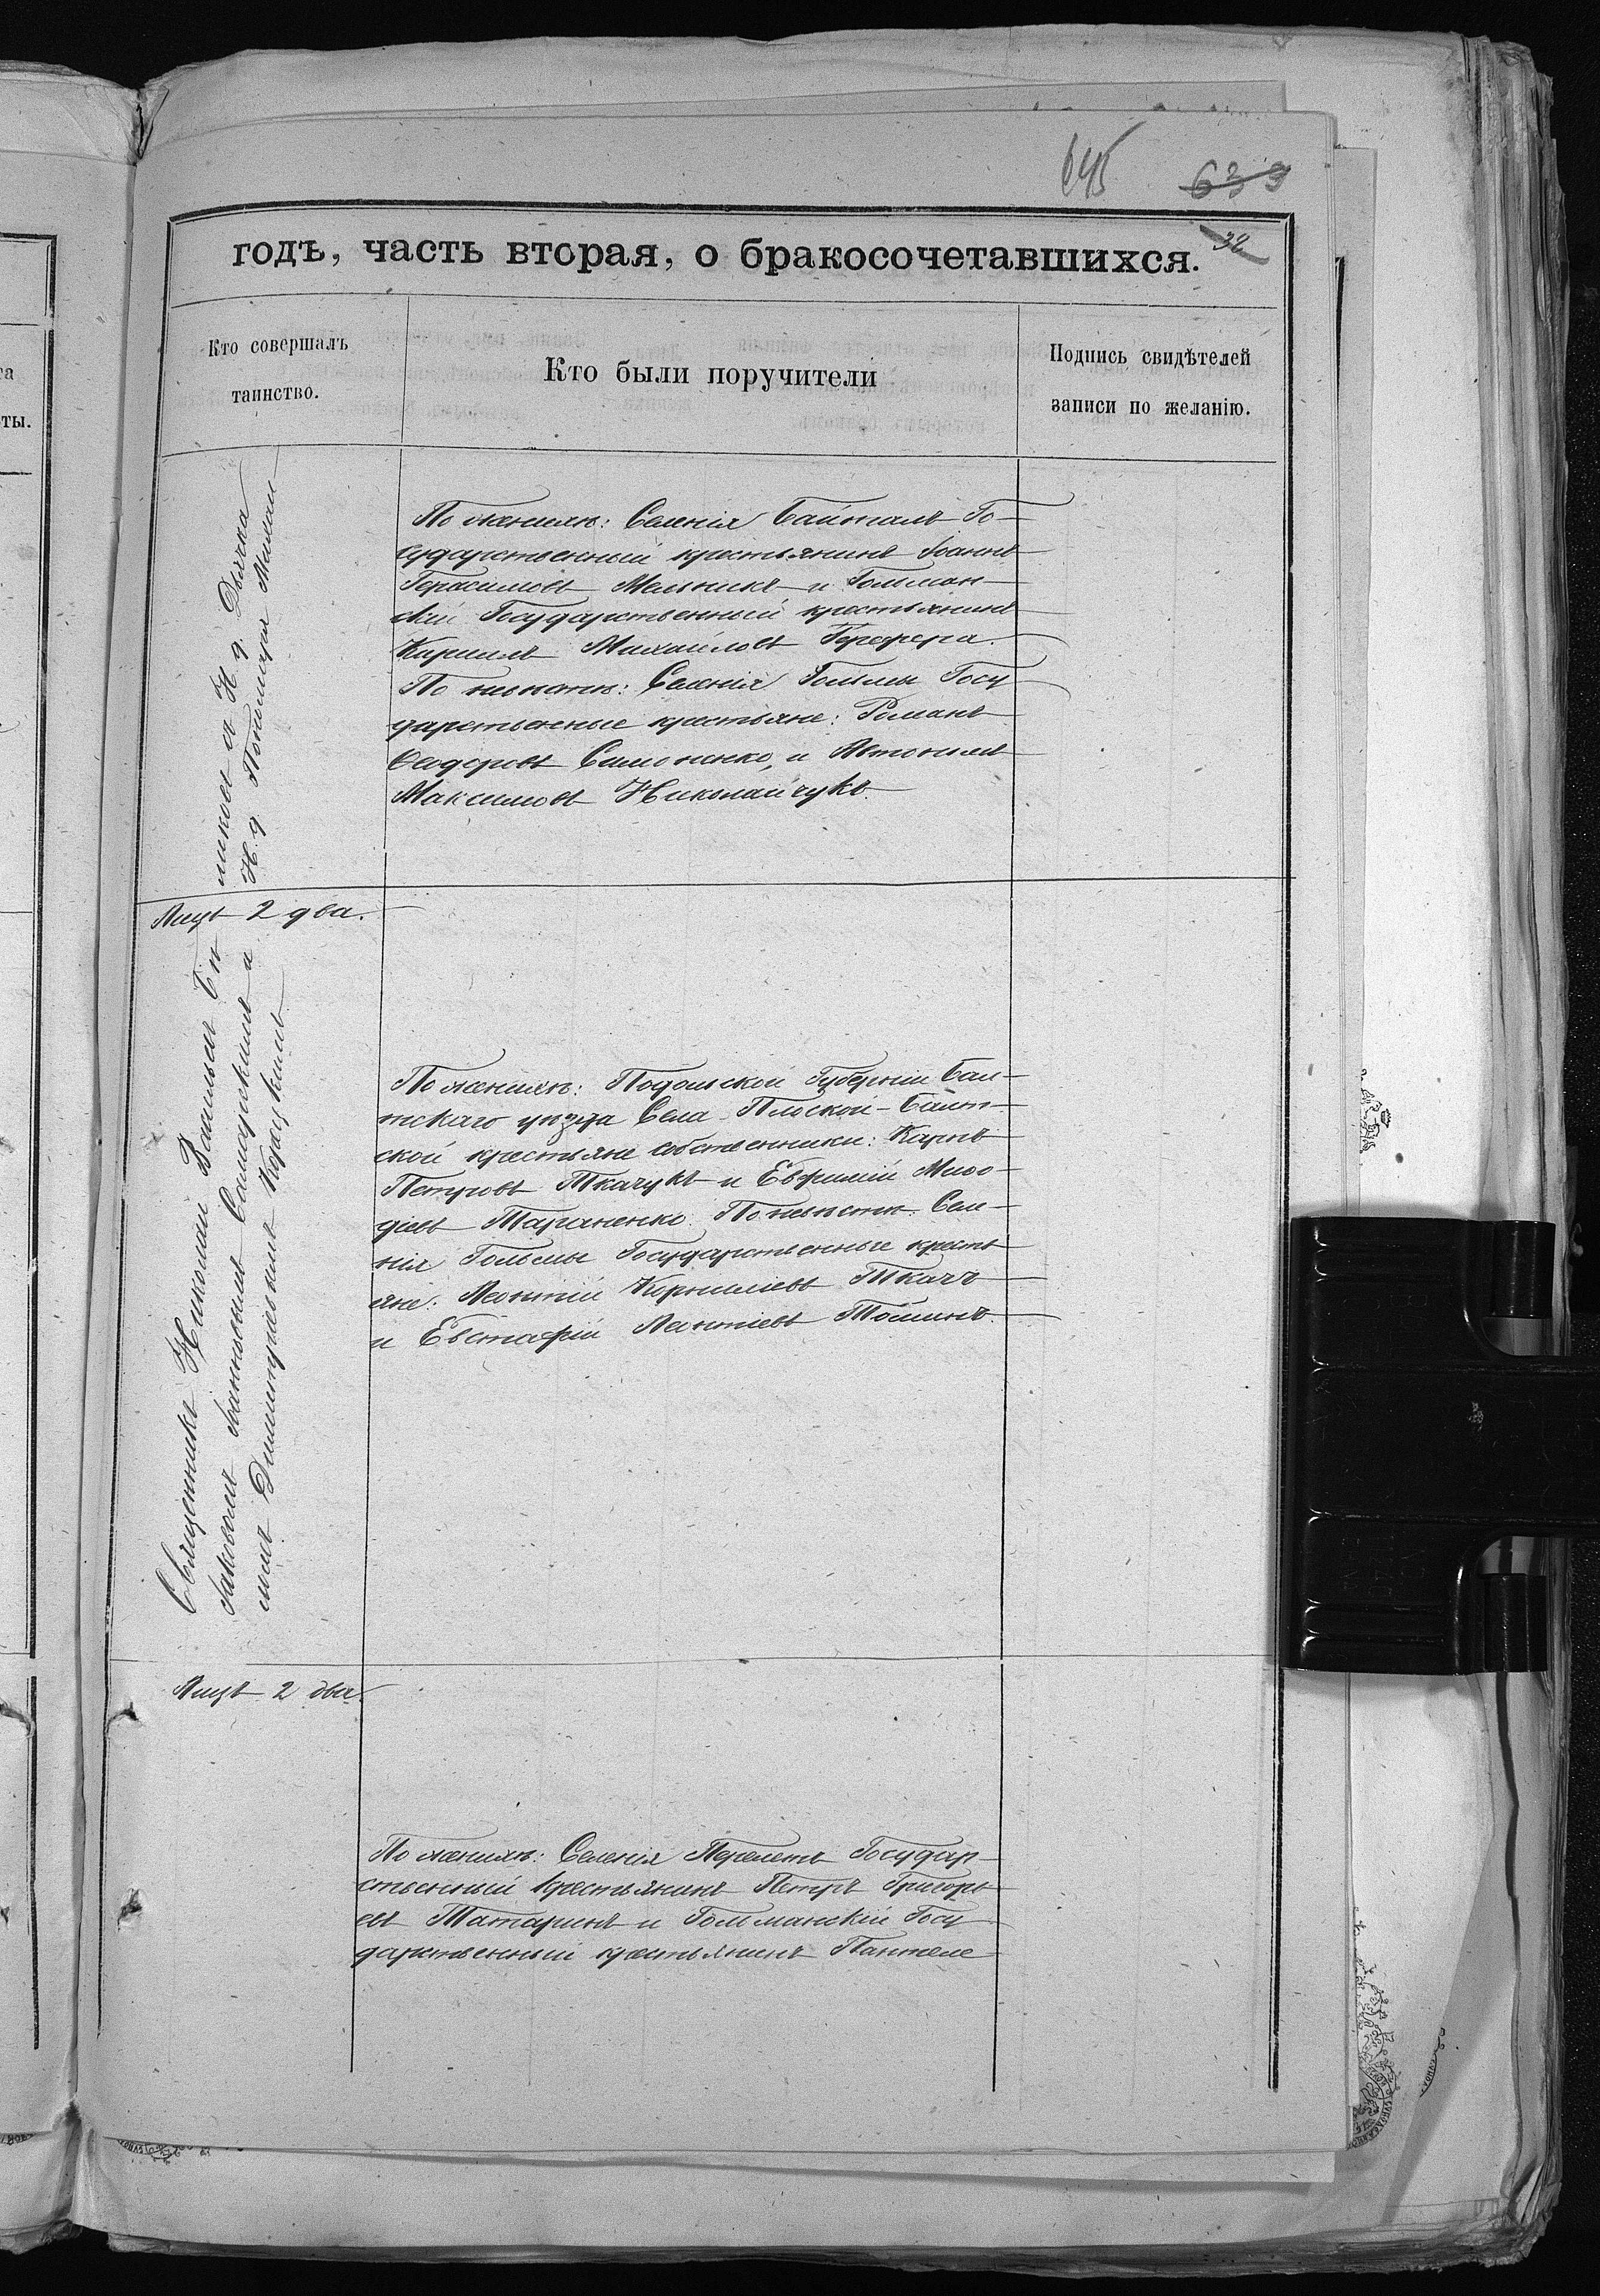 645 639
годъ, часть вторая, о бракосочетавшихся. 32
Кто совершалъ
таинство.
Кто были поручители
Подпись свидѣтелей
записи по желанію.
та
ты.
ников и Н. д. Дьячка
Н. д. Пономаря
По женихѣ: Селенія Байталъ Го-
сударственный крестьянинъ Іоаннъ
Герасимовъ Мельникъ и Гольман-
скій Государственный крестьянинъ
Кириллъ Михайловъ
По невѣстѣ: Селенія Гольмы Госу
дарственные крестьяне: Романъ
Ѳеодоровъ Симоненко, и Автономъ
Максимовъ Николайчукъ.
Лицъ 2 два.
Священникъ Николай Васильевъ Бѣ
съ Іоанномъ
мъ Димитріемъ
По женихѣ: Подольской Губерніи Бал-
тскаго уѣзда Села Плоской-Балт-
ской крестьяне собственники: Карпъ
Петровъ Ткачукъ и Евфимій Меѳо-
діевъ Тараненко. По невѣстѣ. Селе-
нія Гольмы Государственные кресть
яне: Леонтій Корниліевъ Ткачъ
и Евстафій Леонтіевъ
Лицъ 2 два.
По женихѣ: Селенія Перелетъ Государ-
ственный крестьянинъ Петръ Григорь
евъ Татаринъ и Гольманскій Госу
дарственный крестьянинъ Пантеле